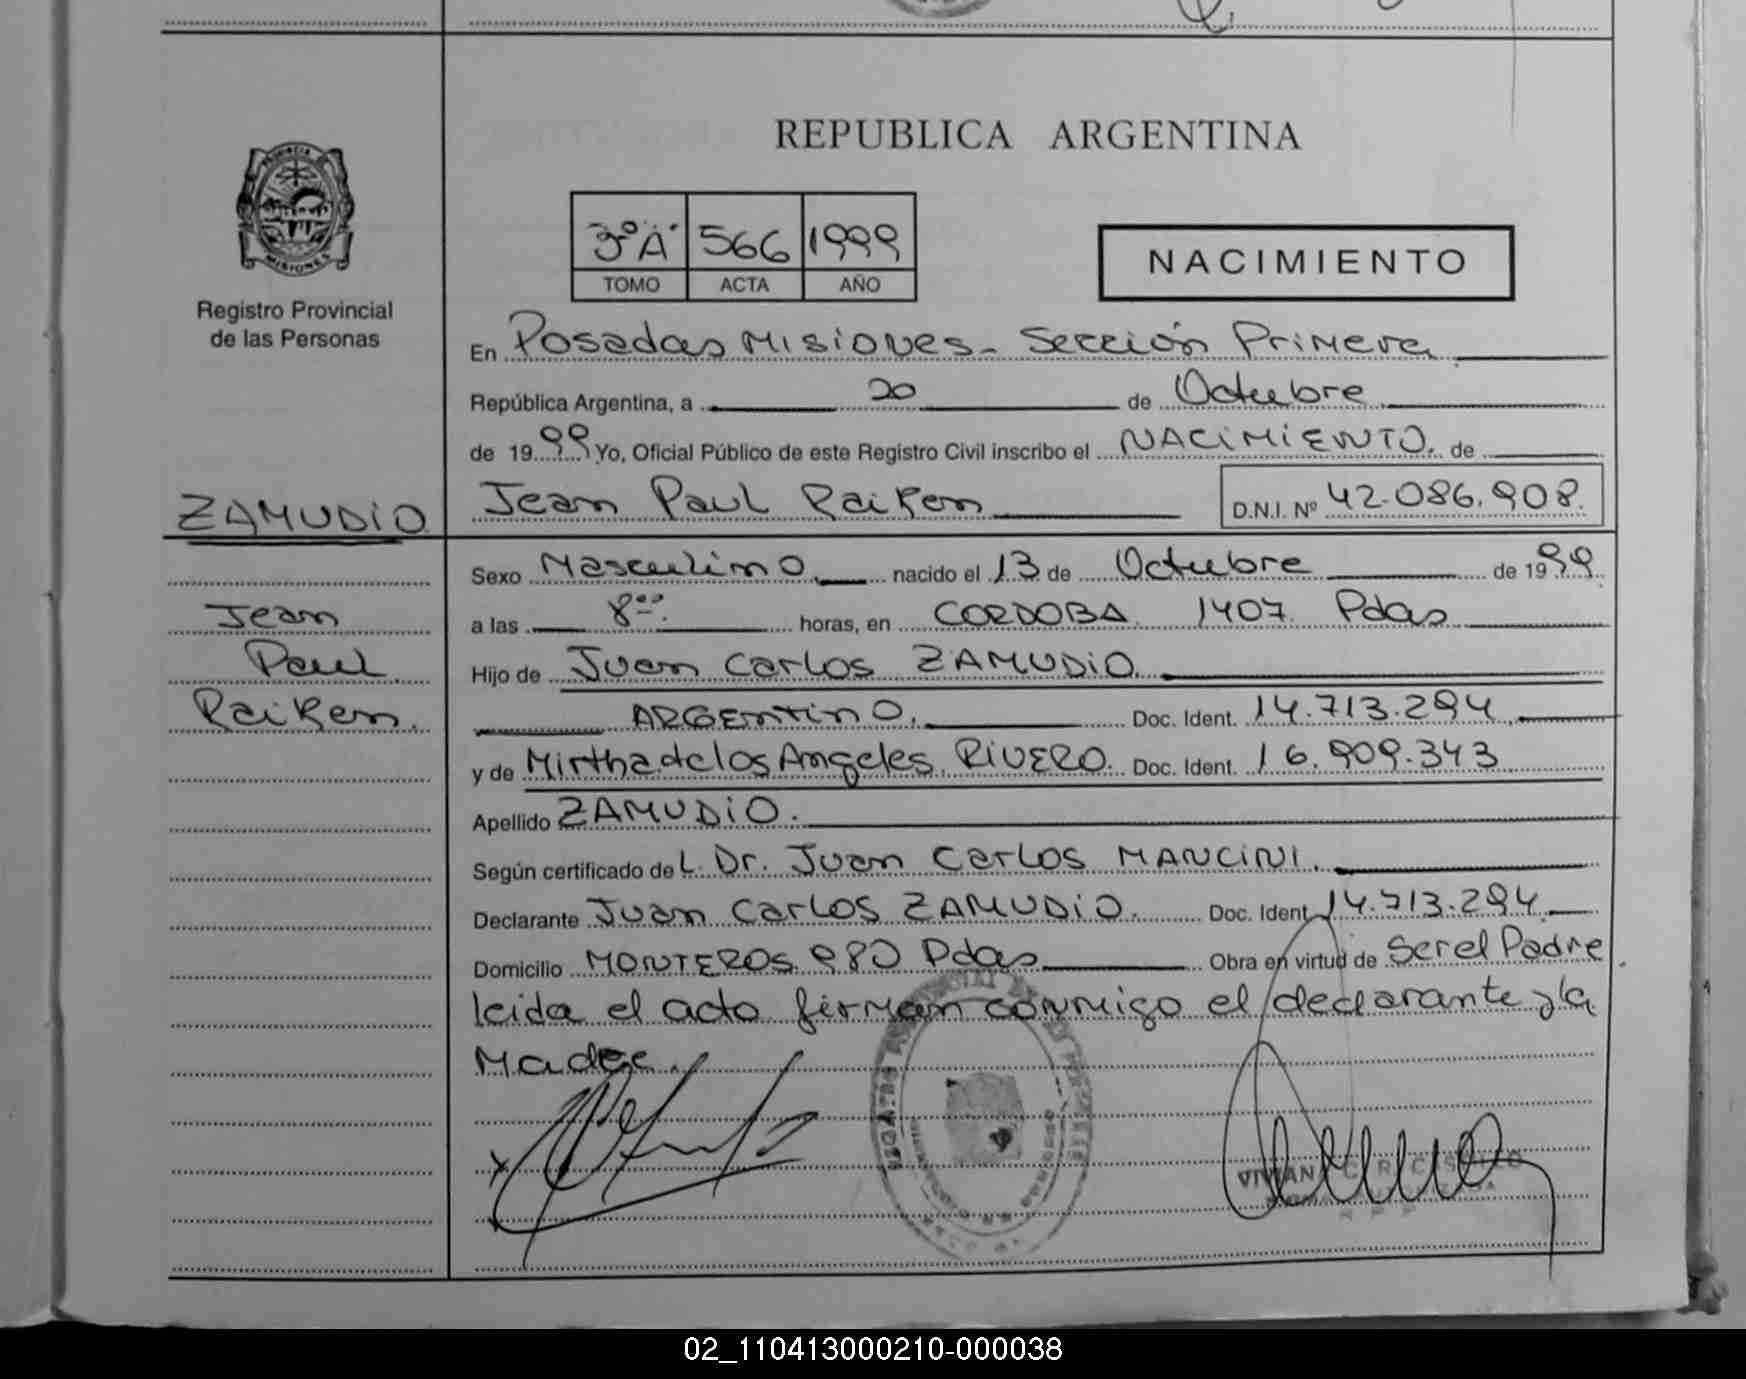 REPUBLICA ARGENTINA
3º "A" 566 1999
TOMO ACTA AÑO
NACIMIENTO
Registro Provincial
de las Personas
En Posadas Misiones - Sección Primera
República Argentina, a 20 de Octubre
de 1999 Yo, Oficial Público de este Registro Civil inscribo el NACIMIENTO. de
ZAMUDIO Jean Paul Raiken D.N.I. Nº 42.086.908.
Sexo Masculino nacido el 13 de Octubre de 1999
Jean
Paul
Raiken.
a las 8:00. horas, en CORDOBA 1407 Pdas
Hijo de Juan Carlos ZAMUDIO
ARGENTINO. Doc. Ident. 14.713.294
y de Mirtha de los Angeles RIVERO. Doc. Ident. 16.909.343
Apellido ZAMUDIO.
Según certificado del Dr. Juan Carlos MANCINI.
Declarante Juan Carlos ZAMUDIO. Doc. Ident 14.713.294
Domicilio MONTEROS 980 Pdas Obra en virtud de Ser el Padre
leida el acto firman conmigo el declarante y la
Madre.
02_110413000210-000038